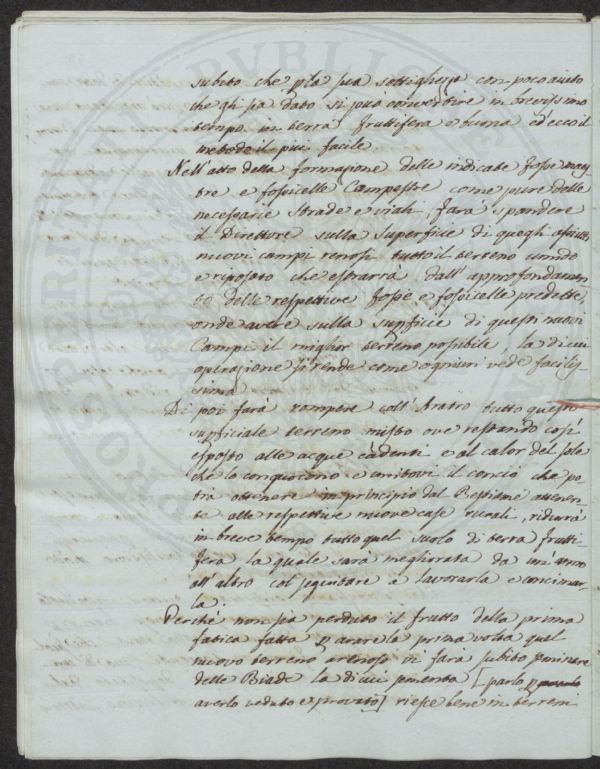 subito che pla sua sottigliezza con poco aiuto
che gli sia dato si può convertire in brevissimo
tempo in terra fruttifera e buona ed ecco il
metodo il più facile.
Nell'atto della formazione delle indicate fosse maes
tre e fossicelle Campestre come pure delle
necessarie Strade e viali, farà spandere
il Direttore sulla superficie di quegli
nuovi campi renosi tutto il terreno umido
e riposato che estrarrà dall'approfondamen
to delle respettive fosse e fossicelle predette,
onde avere sulla supficie di questi nuovi
Campi il miglior terreno possibile, la di cui
operazione si rende come ognun vede facilis
sima
Di poi farà rompere coll'Aratro tutto questo
supficiale terreno misto ove restando così
esposto alle acque cadenti e al calor del sole
che lo conquocono e unitovi il concio che po
trà ottenere in principio dal Bestiame attenen
te alle respettive nuove case rurali, ridurrà
in breve tempo tutto quel suolo di terra frutti-
fera la quale sarà megliorata da un'anno
all'altro col seguitare a lavorarla e concimar
la.
Perché non sia perduto il frutto della prima
fatica fatta p arare la prima volta quel
nuovo terreno arenoso vi farà subito seminare
delle Biade la di cui sementa [parlo p
averlo veduto e provato] riesce bene in terreni
PVBLICO
PROSPERITATI